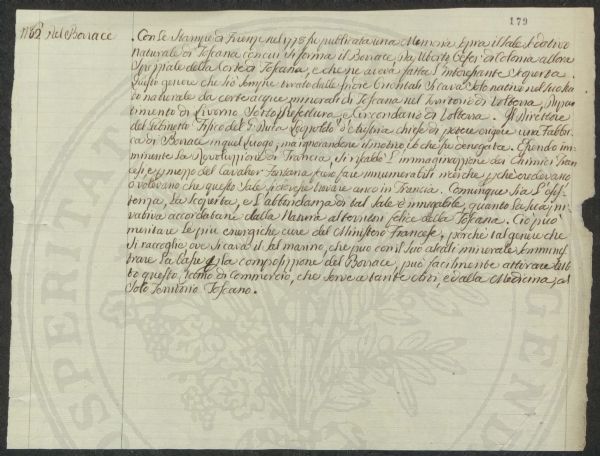 179
1782 Nel Borrace
Con le Stampe di Firenze nel 1778 fu publicata una Memoria sopra il Sale Sedativo
naturale di Toscana con cui si forma il Borrace da Uberto Oefer di Colonia allora
Speziale della Corte di Toscana, e che ne aveva fatta l'interessante scoperta.
Questo genere che si è sempre tirato dalle Indie Orientali si cava Sotto nativo nel suo stato
naturale da certe acque minerali di Toscana nel Territorio di Volterra, Dipar-
timento di Livorno Sotto Prefettura e Circondario di Volterra. Il Direttore
del Gabinetto Fisico del G. Duca Leopoldo d'Austria chiese di potere erigere una fabbri-
ca di Borrace in quel luogo, ma ignorandone il motivo, ciò che fu denegata. Essendo im-
minente la Rivoluzione di Francia, si riscaldò l'immaginazione dei Chimici Fran-
cesi, e per mezzo del Cavalier Fontana fece fare innumerabili ricerche perchè credevano
o volevano che questo Sale si dovesse trovare anco in Francia. Comunque sia l'esis-
tenza, la scoperta, e l'abbondanza di tal Sale è innegabile, quanto la sua pri-
vativa accordatane dalla Natura al terreno felice della Toscana. Ciò può
meritare le più energiche cure del Ministero Francese, perchè tal genere che
si raccoglie ove si cava il sal marino, che può con il suo alcali minerale somminis-
trare la base per la composizione del Borrace, può facilmente attivare tut-
to questo ramo di commercio, che serve a tante Arti, e dalla Medicina, al
solo Territorio Toscano.